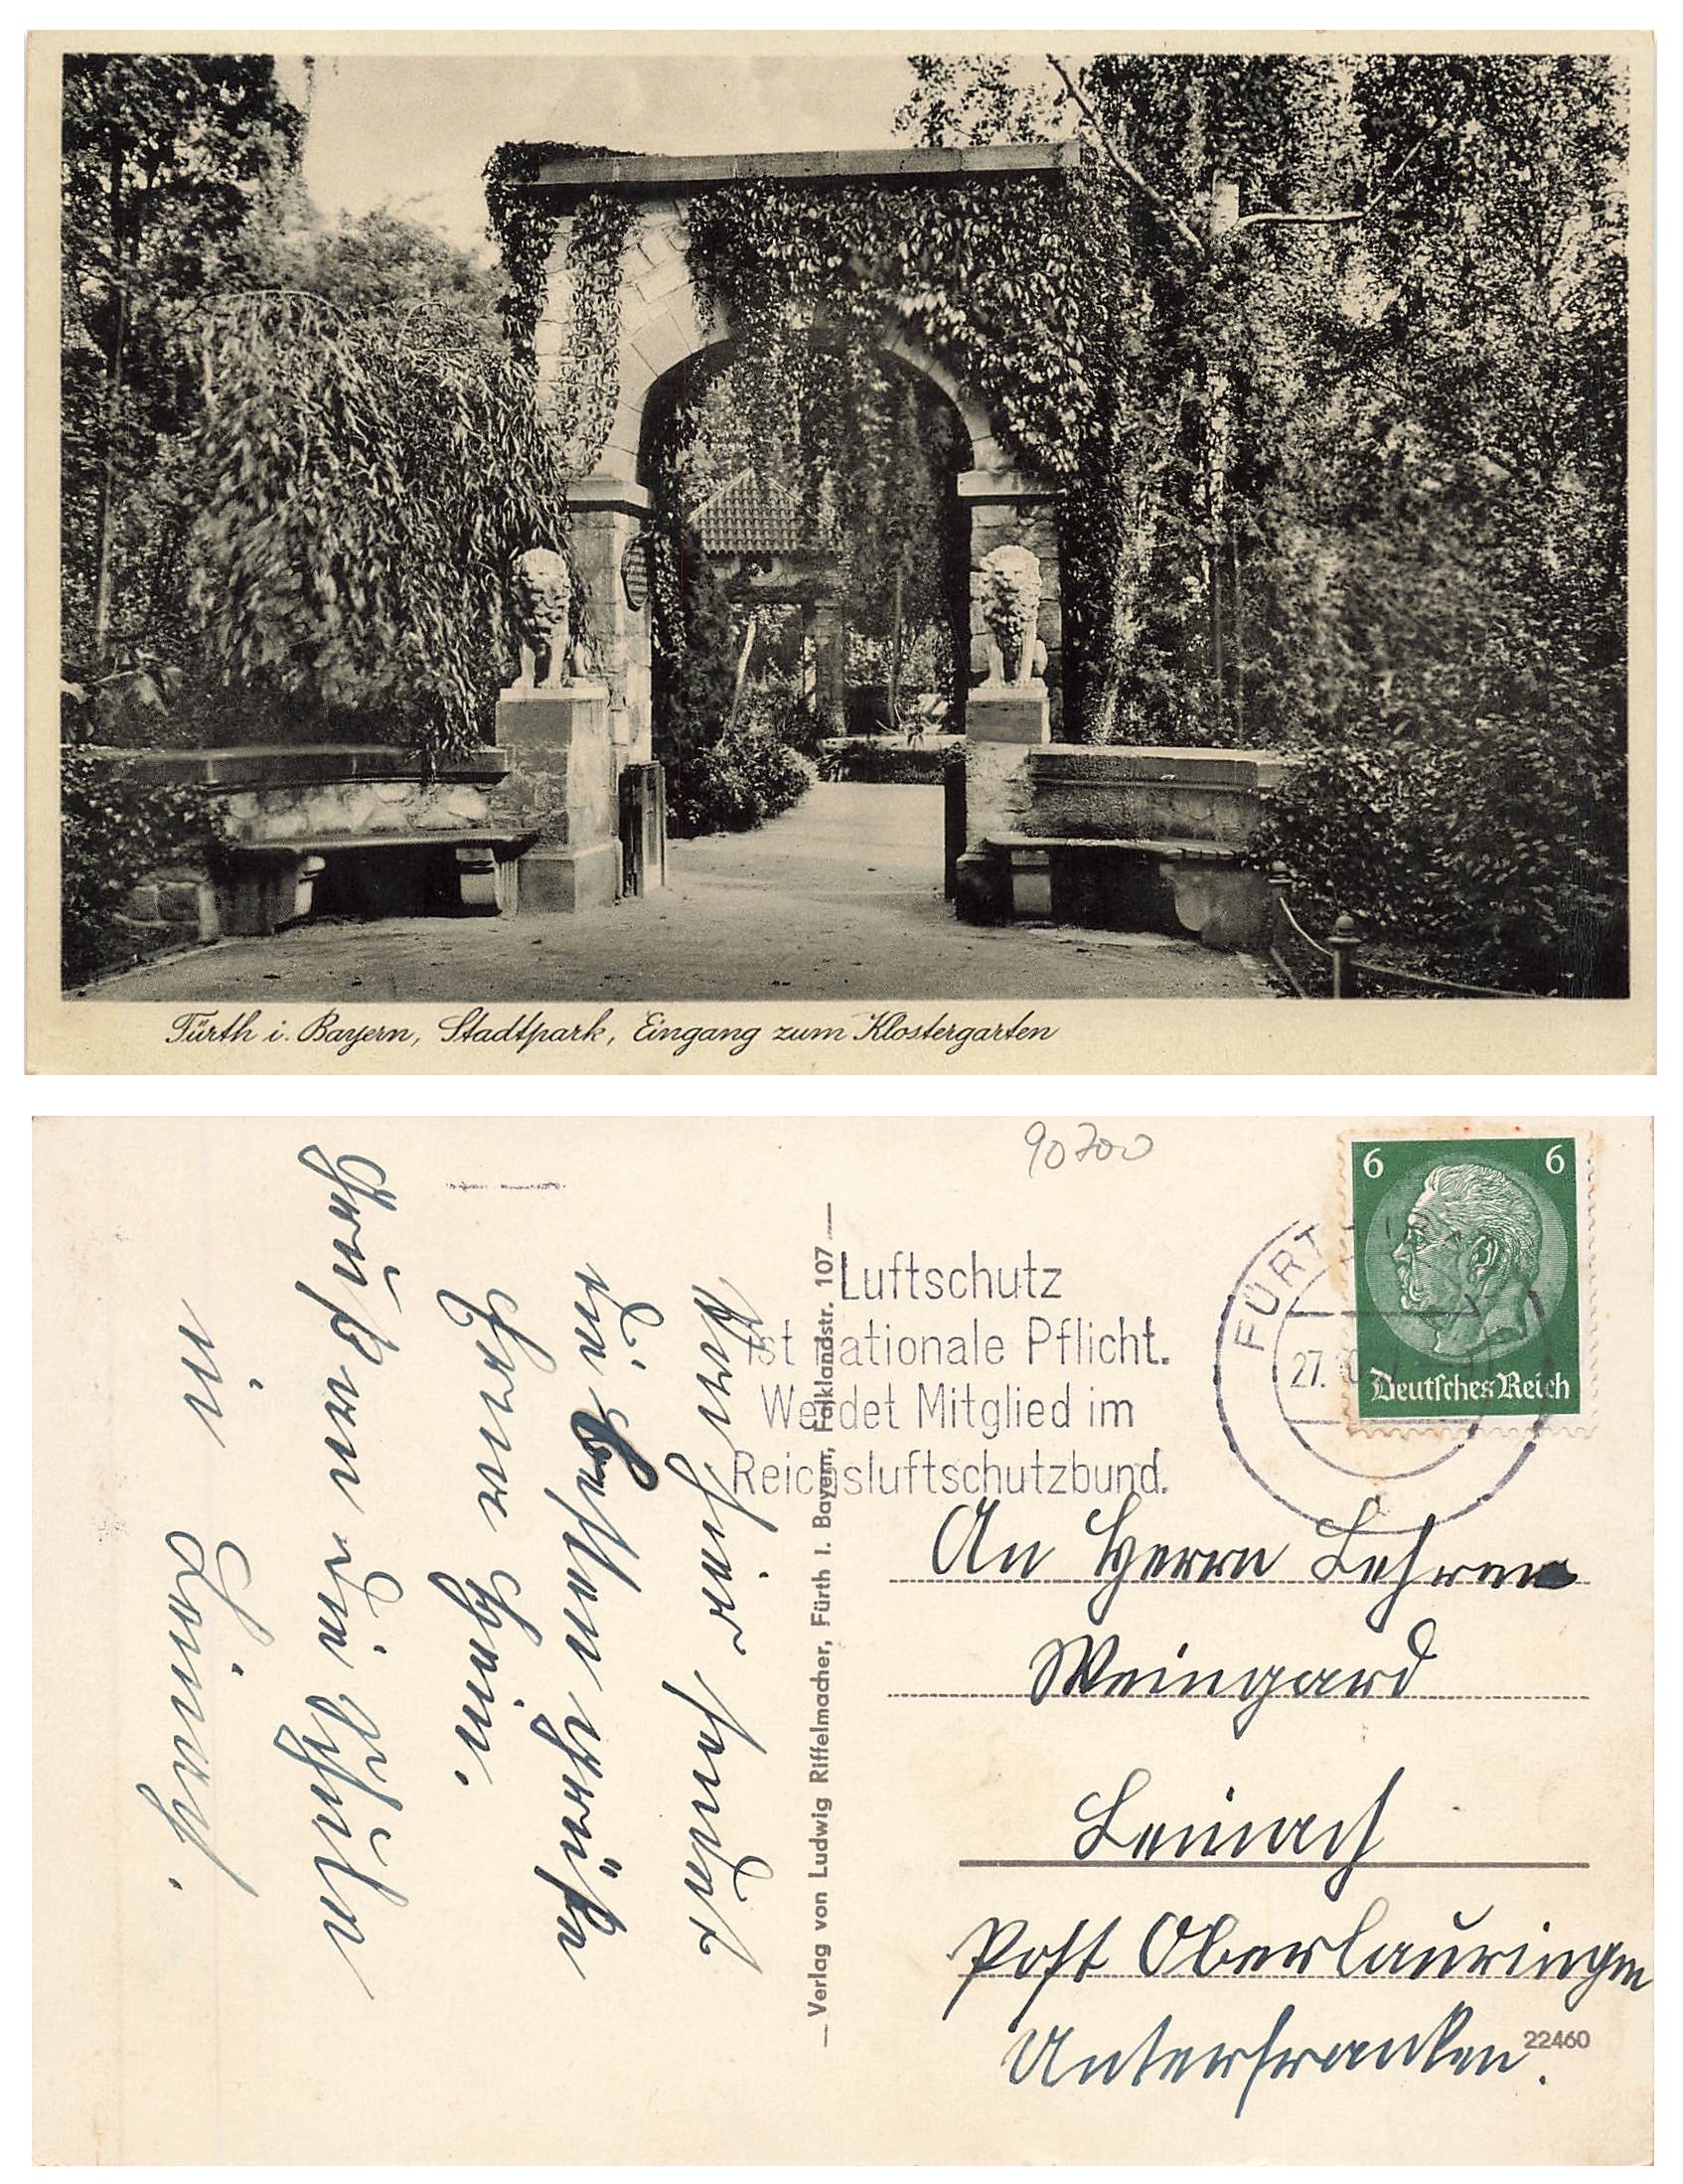 Fürth i. Bayern, Stadtpark, Eingang zum Klostergarten
90700
6 6
Deutsches Reich
FÜRT
27.
Luftschutz
ist nationale Pflicht.
Werdet Mitglied im
Reichsluftschutzbund.
sendet
die besten Grüße
in Leinach.
Verlag von Ludwig Riffelmacher, Fürth i. Bayern, Falklandstr. 107
An Herrn Lehrer
Weingard
Leinach
Post Oberlauringen
Unterfranken.
22460